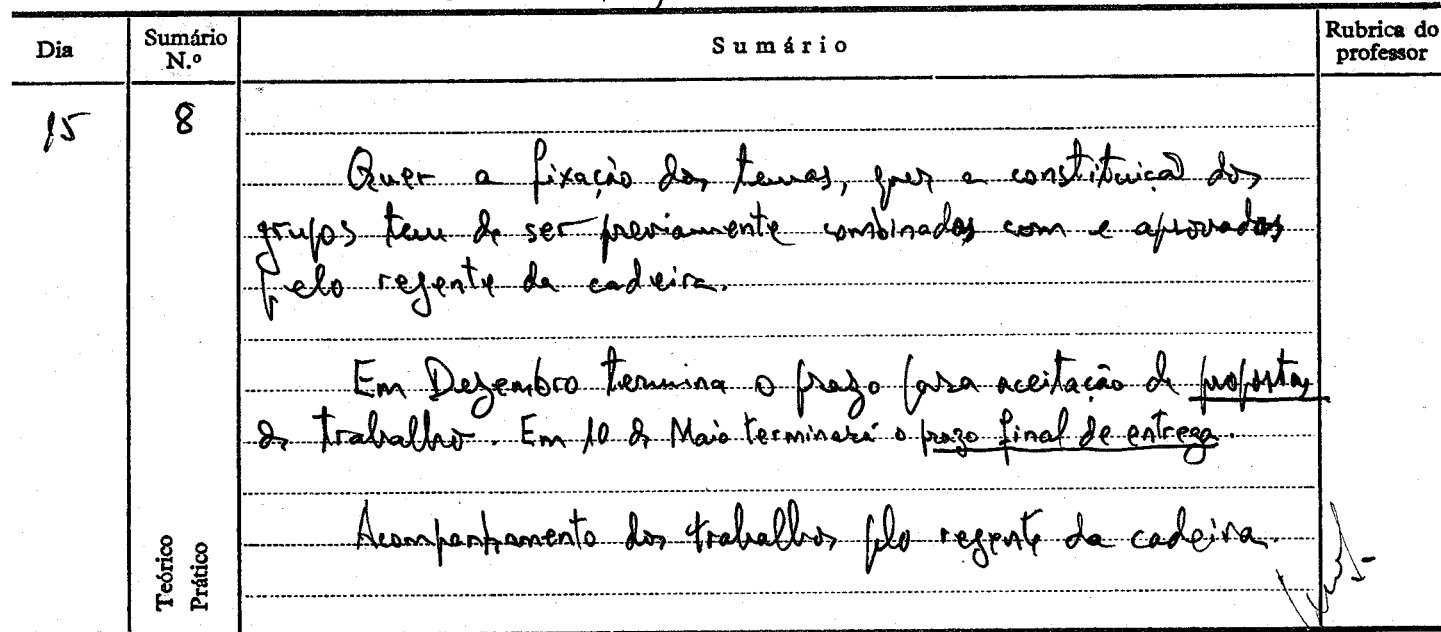 Dia
Sumário N.º
Sumário
Rubrica do professor
15
8
Quer a fixação dos temas, quer a constituição dos
grupos tem de ser previamente combinados com e aprovados
pelo regente da cadeira.
Em Dezembro termina o prazo para aceitação de propostas
de trabalho. Em 10 de Maio terminará o prazo final de entrega.
Acompanhamento dos trabalhos pelo regente da cadeira.
Teórico
Prático